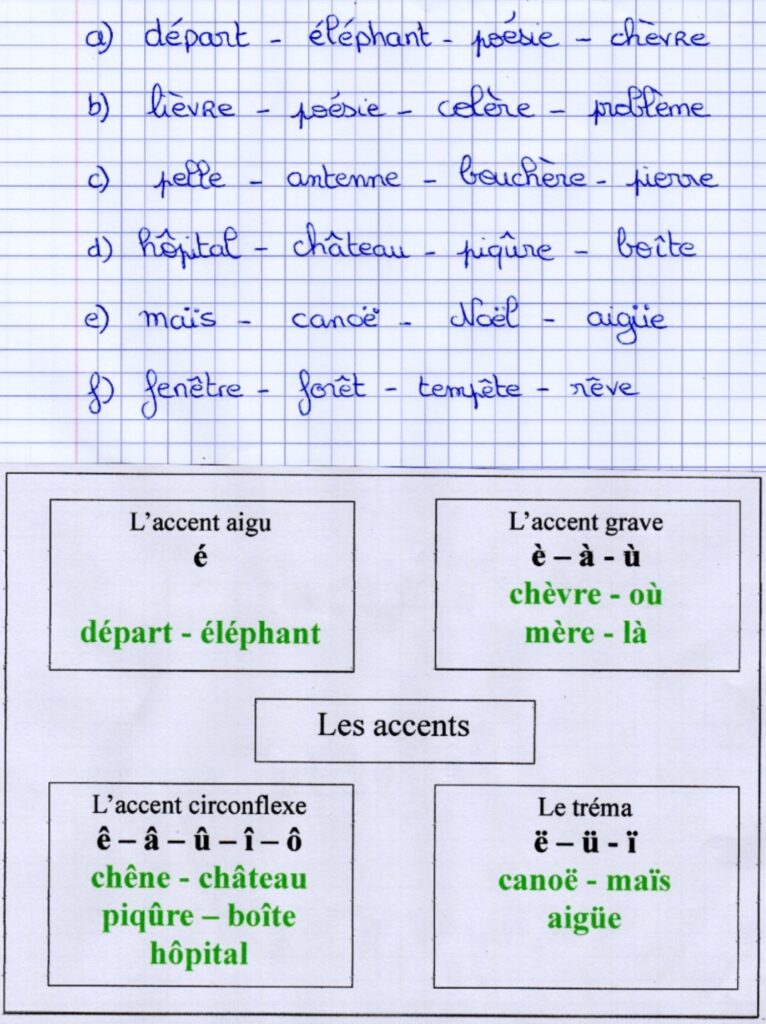 a) départ - éléphant - poésie - chèvre
b) lièvre - poésie - colère - problème
c) pelle - antenne - bouchère - pierre
d) hôpital - château - piqûre - boîte
e) maïs - canoë - Noël - aigüe
f) fenêtre - forêt - tempête - rêve
L'accent aigu
é
départ - éléphant
L'accent grave
è – à - ù
chèvre - où
mère - là
Les accents
L'accent circonflexe
ê – â – û – î – ô
chêne - château
piqûre – boîte
hôpital
Le tréma
ë – ü - ï
canoë - maïs
aigüe